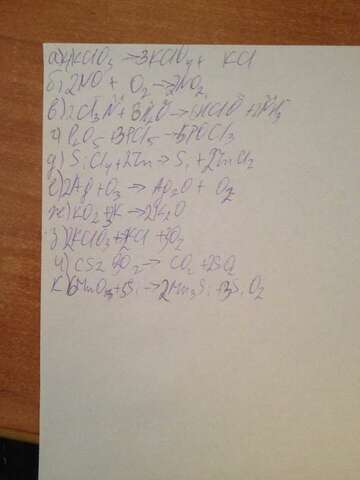 а) 4KClO3 → 3KClO4 + KCl
б) 2NO + O2 → 2NO2
в) 2Cl3N + 3H2O
г) P2O5 + 3PCl5 → 5POCl3
д) SiCl4 + 2Zn → Si + 2ZnCl2
е) 2Ag + O3 → Ag2O + O2
ж) KO2 + 3K → 2K2O
з) 2KClO3 → 2KCl + 3O2
и) CS2 3O2 → CO2 + 2SO2
к) 6MnO3 + 5Si → 2Mn3Si + 3SiO2